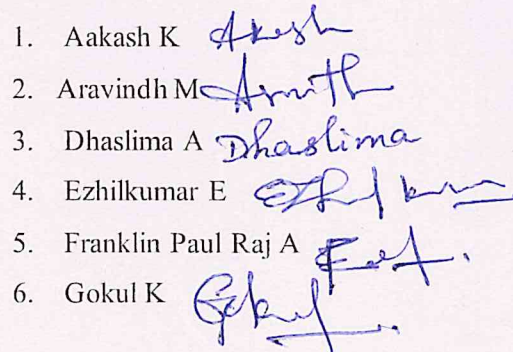 1. Aakash K Akash
2. Aravindh M
3. Dhaslima A Dhaslima
4. Ezhilkumar E Ezhil kumar
5. Franklin Paul Raj A
6. Gokul K Gokul